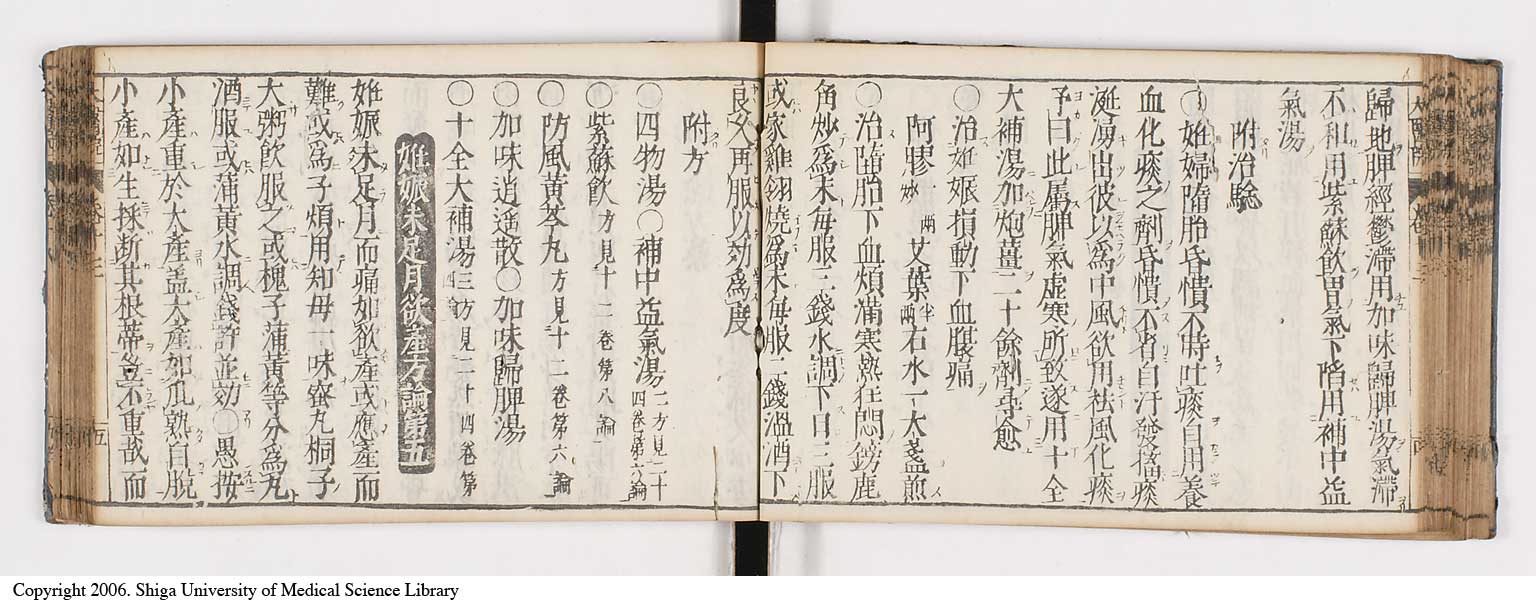 歸地脾經鬱滯用加味歸脾湯氣滯
不和用紫蘇飲胃氣下陷用補中益
氣湯
附治驗
○妊婦墮胎昏憒不時吐痰自用養
血化痰之劑昏憒不省自汗發搐痰
涎湧出彼以為中風欲用袪風化痰
予曰此屬脾氣虛寒所致遂用十全
大補湯加炮薑二十餘劑尋愈
○治妊娠損動下血腹痛
阿膠炒 兩 艾葉半兩右水一大盞煎
○治墮胎下血煩滿寒熱狂悶鎊鹿
角炒為末每服三錢水調下日三服
或家雞翎燒為末每服二錢溫酒下
良久再服以効為度
附方
○四物湯○補中益氣湯二方見二十四卷第六論
○紫蘇飲方見十二卷第八論
○防風黃芩丸方見十二卷第六論
○加味逍遙散○加味歸脾湯
○十全大補湯三方見二十四卷第 論
妊娠未足月欲產方論第五
妊娠未足月而痛如欲產或應產而
難或為子煩用知母一味蜜丸桐子
大粥飲服之或槐子蒲黃等分為丸
酒服或蒲黃水調錢許並効○愚按
小產重於大產蓋大產如瓜熟自脫
小產如生採斷其根蒂豈不重哉而
Copyright 2006. Shiga University of Medical Science Library